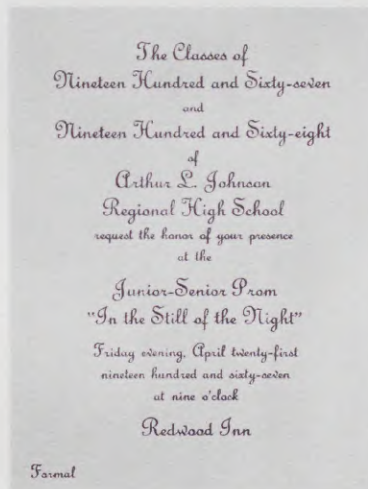 The Classes of
Nineteen Hundred and Sixty-seven
and
Nineteen Hundred and Sixty-eight
of
Arthur L. Johnson
Regional High School
request the honor of your presence
at the
Junior-Senior Prom
"In the Still of the Night"
Friday evening, April twenty-first
nineteen hundred and sixty-seven
at nine o'clock
Redwood Inn
Formal